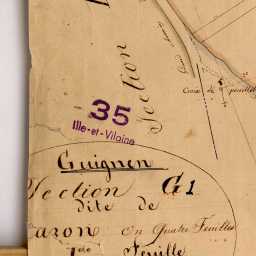 Section
Croix de
35
Ille-et-Vilaine
Guignen
Section G1
dite de
en Quatre Feuilles
1ère Feuille